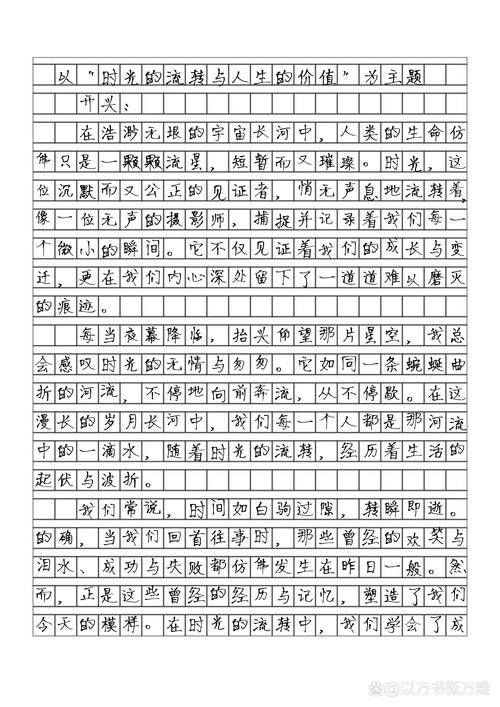 以“时光的流转与人生的价值”为主题
开头：
在浩渺无垠的宇宙长河中，人类的生命仿
佛只是一颗颗流星，短暂而又璀璨。时光，这
位沉默而又公正的见证者，悄无声息地流转着，
像一位无声的摄影师，捕捉并记录着我们每一
个微小的瞬间。它不仅见证着我们的成长与变
迁，更在我们内心深处留下了一道道难以磨灭
的痕迹。
每当夜幕降临，抬头仰望那片星空，我总
会感叹时光的无情与匆匆。它如同一条蜿蜒曲
折的河流，不停地向前奔流，从不停歇。在这
漫长的岁月长河中，我们每一个人都是那河流
中的一滴水，随着时光的流转，经历着生活的
起伏与波折。
我们常说，时间如白驹过隙，转瞬即逝。
的确，当我们回首往事时，那些曾经的欢笑与
泪水、成功与失败都仿佛发生在昨日一般。然
而，正是这些曾经的经历与记忆，塑造了我们
今天的模样。在时光的流转中，我们学会了成
@以万书抵万难